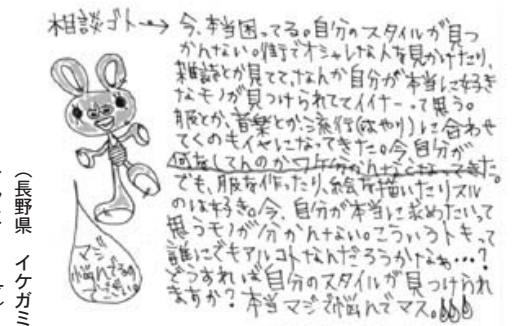 相談ゴト→ 今、本当困ってる。自分のスタイルが見つ
かんない。街でオシャレな人を見かけたり、
雑誌とか見てて、なんか自分が本当に好き
なモノが見つけられててイイナーって思う。
服とか、音楽とか流行(はやり)に合わせ
てくのもイヤになってきた。今自分が
何をしてんのかワケ分かんなくなってきた。
でも、服を作ったり、絵を描いたりスル
のは好き。今、自分が本当に求めたいって
思うモノが分かんない。こういうトキって
誰にでもアルコトなんだろうかなぁ…?
どうすれば自分のスタイルが見つけられ
ますか?本当マジで悩んでマス。
マジ
悩んでるの
でございい。
(長野県 イケガミ